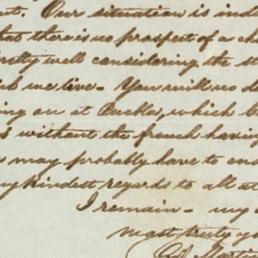 t. Our situation is inde
but there is no prospect of a cha
pretty well considering the st
we live - You will no d
ing on at Puebla, which b
without the french having
may probably have to end
y kindest regards to all at
I remain - my d
most truly yo